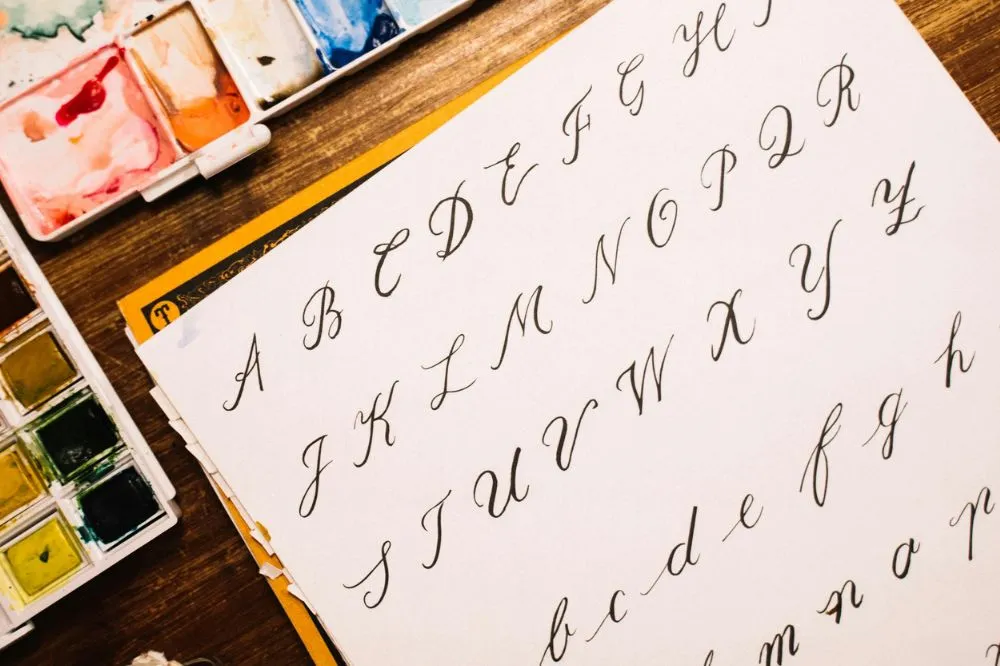 A B C D E F G H
J K L M N O P Q R
S T U V W X Y Z
b c d e f g h
m n o p
T